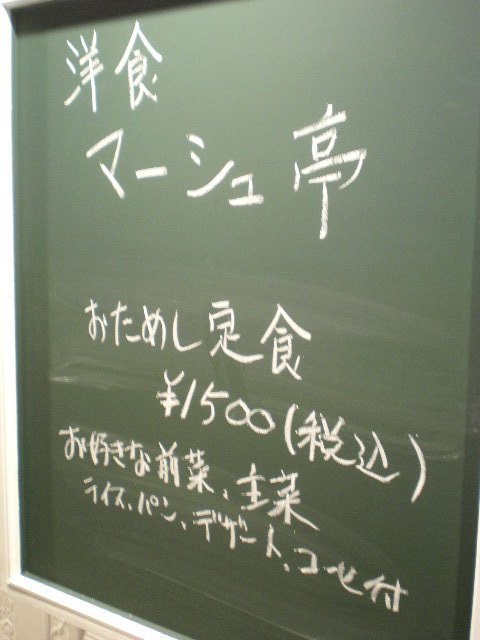 洋食
マーシュ亭
おためし定食
¥1500(税込)
お好きな前菜、主菜
ライス、パン、デザート、コーヒ付